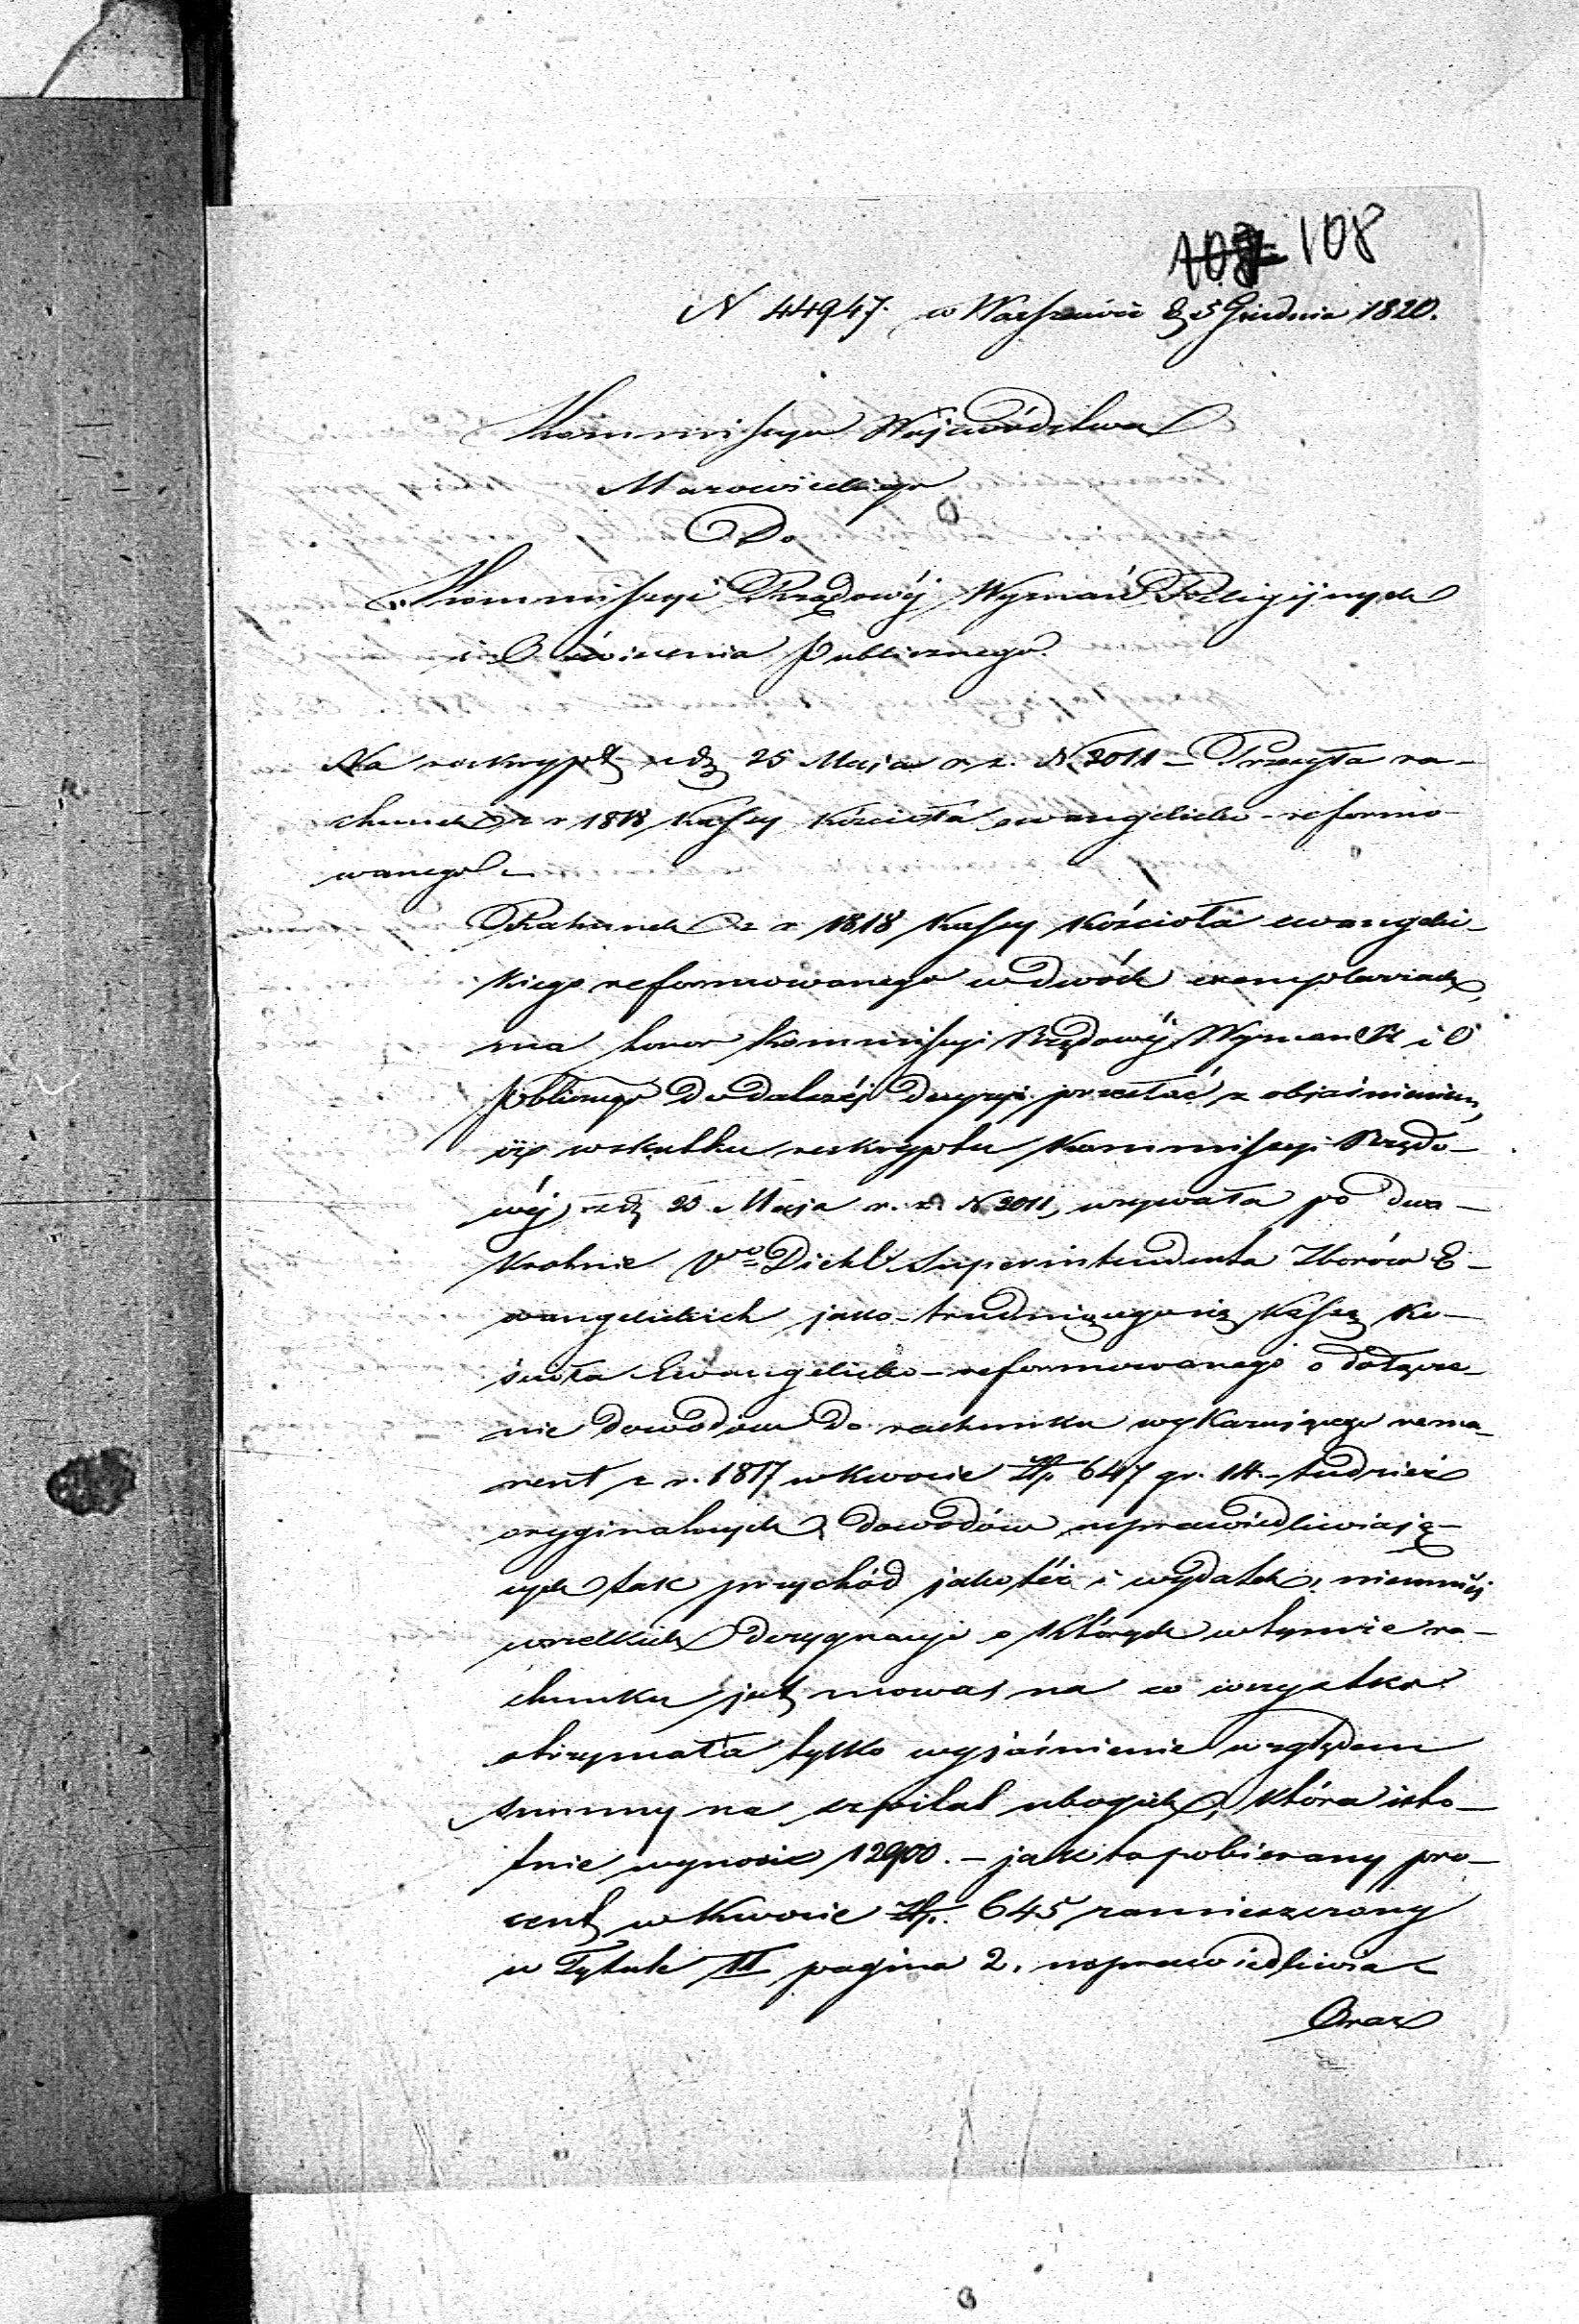 107 108
N 44947. w Warszawie d 5 Grudnia 1820.
Kommissya Województwa
Mazowieckiego
Do
Kommissyi Rządowéj Wyznań Religijnych
i Oświecenia Publicznego.
Na reskrypt z d 25 Maja r. z. N. 2011 – Przesyła ra-
chunek z r 1818 Kassy Kościoła ewangelicko-reformo-
wanego –
Rahunek z r 1818 Kassy Kościoła ewangelic-
kiego reformowanego w dwóch exemplarzach,
ma honor Kommissyi Rządowéj Wyznań R i O
Publicznego do dalszéj decyzyi przesłać z objaśnieniem,
iż w skutku reskryptu Kommissyi Rządo-
wéj z d 25 Maja r. z. N 2011, wzywała po dwa-
krotnie Diehl Superintendenta Zborów E-
wangelickich jako trudniącego się Kassą Ko-
ścioła Ewangelicko-reformowanego o dołącze-
nie dowodów do rachunku wykazującego rema-
nent z r. 1817 w kwocie Złp. 647 gr. 14. – tudzież
oryginalnych dowodów usprawiedliwiają-
cych tak przychód jako też i wydatek, niemniéj
wszelkich dezygnacyi o których w tymże ra-
chunku jest mowa, na co wszystko
otrzymała tylko wyjaśnienie względem
summy na szpital ubogich, która isto-
tnie wynosi 12900. – jak to pobierany pro-
cent w kwocie Złp. 645 zamieszczony
w Tytule II pagina 2. usprawiedliwia –
Oraz